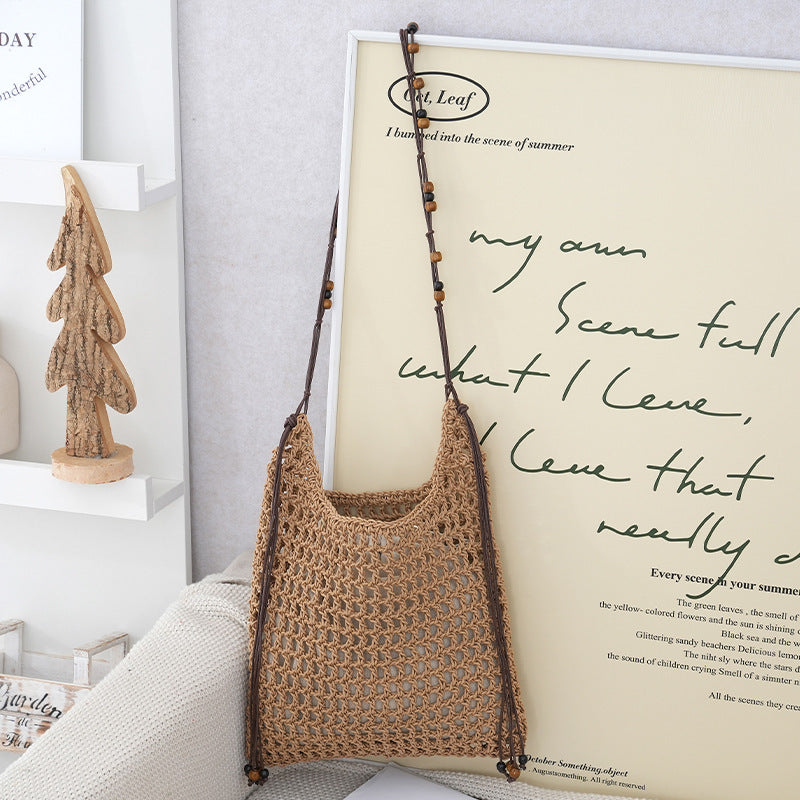 DAY
onderful
Oct, Leaf
I bumped into the scene of summer
my own
Scene full
what I leve,
I leve that
really
Every scene in your summer
The green leaves , the smell of
the yellow- colored flowers and the sun is shining
Black sea and the w
Glittering sandy beachers Delicious lemon
The niht sly where the stars d
the sound of children crying Smell of a simnter n
All the scenes they cre
October Something.object
Augustsomething. All right reserved
Garden
de